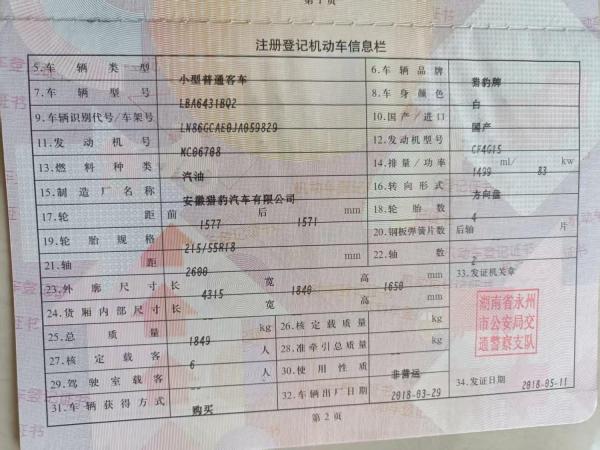 第1页
注册登记机动车信息栏
5.车辆类型 小型普通客车 6.车辆品牌 猎豹牌
7.车辆型号 LBA6431BQ2 8.车身颜色 白
9.车辆识别代号/车架号 LN86GCAE0JA059829 10.国产/进口 国产
11.发动机号 NC06708 12.发动机型号 CF4G15
13.燃料种类 汽油 14.排量/功率 1499 ml/ 83 kw
15.制造厂名称 安徽猎豹汽车有限公司 16.转向形式 方向盘
17.轮距 前 1577 后 1571 mm 18.轮胎数 4
19.轮胎规格 215/55R18 20.钢板弹簧片数 后轴 片
21.轴距 2600 mm 22.轴数 2
23.外廓尺寸 长 4315 宽 1840 高 1650 mm 33.发证机关章
24.货厢内部尺寸 长 宽 高 mm
湖南省永州
市公安局交
通警察支队
25.总质量 1849 kg 26.核定载质量 kg
27.核定载客 人 28.准牵引总质量 kg
29.驾驶室载客 人 30.使用性质 非营运
31.车辆获得方式 购买 32.车辆出厂日期 2018-03-29 34.发证日期 2018-05-11
第2页